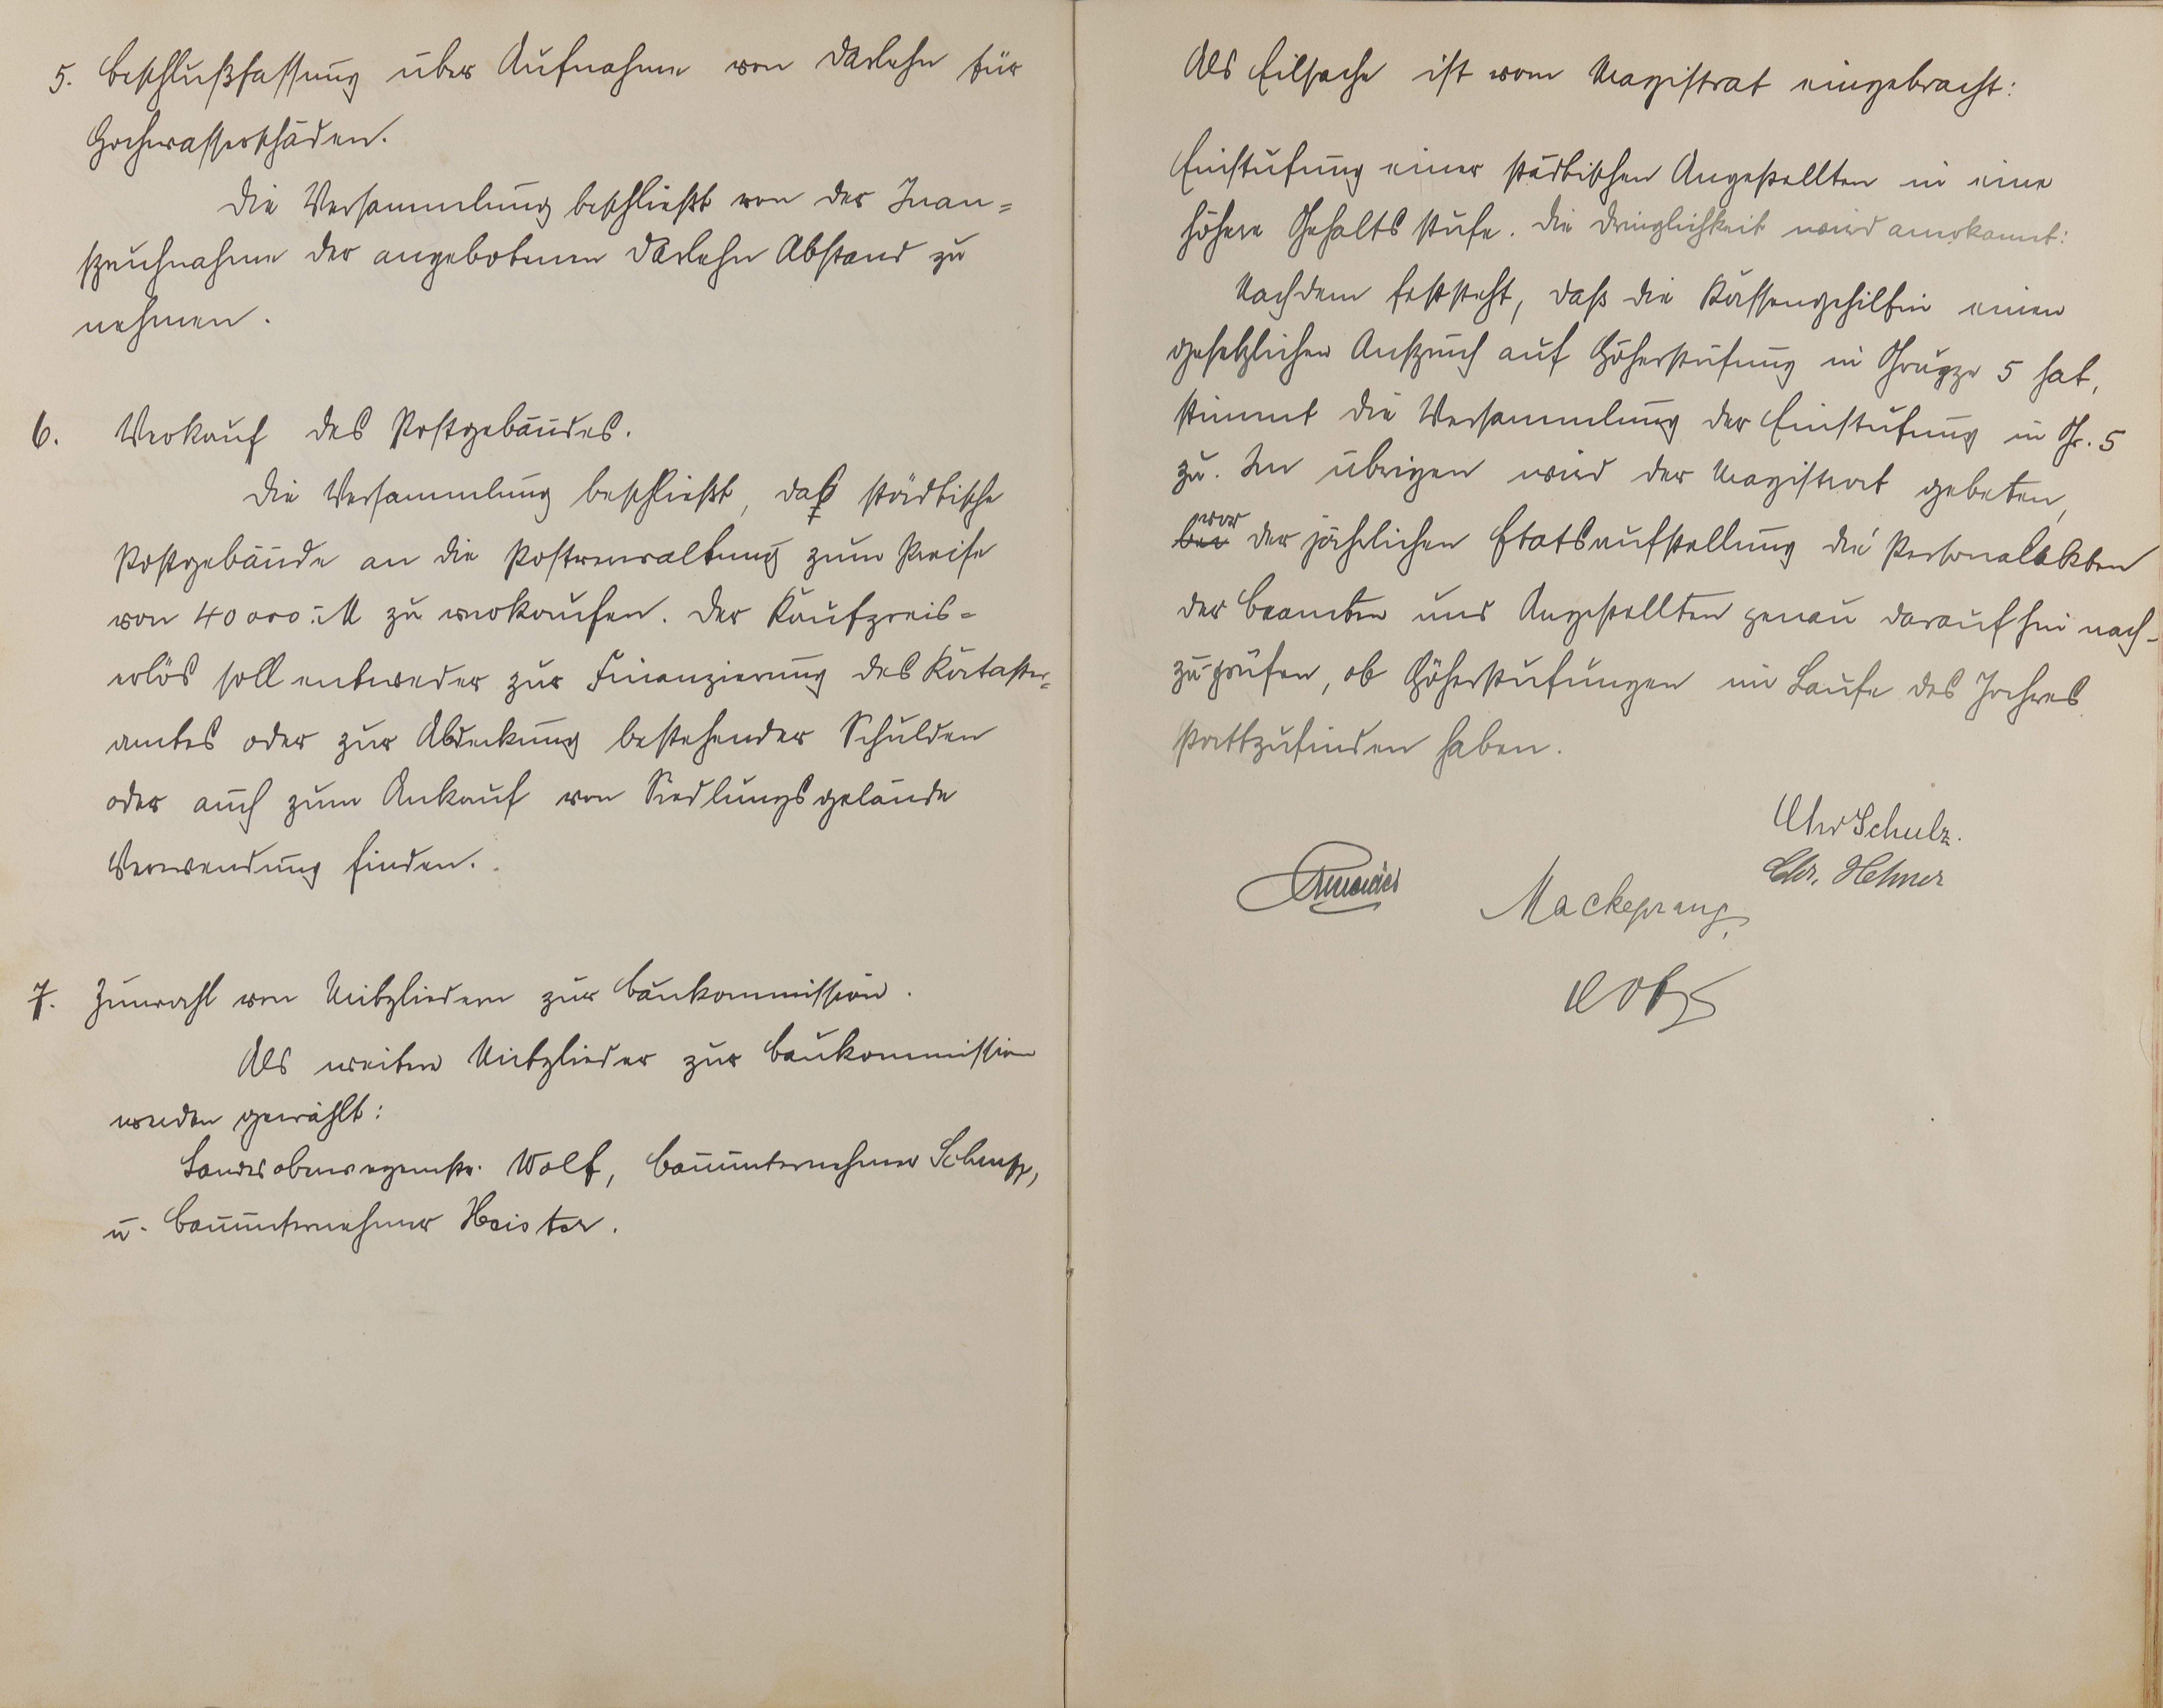 5. Beschlußfassung über Aufnahme von Darlehn für
Hochwasserschäden.
Die Versammlung beschließt von der Inan=
spruchnahme der angebotenen Darlehn Abstand zu
nehmen.
6. Verkauf des Postgebäudes.
Die Versammlung beschließt, das städtische
Postgebäude an die Postverwaltung zum Preise
von 40000.- M zu verkaufen. Der Kaufpreis=
erlös soll entweder zur Finanzierung des Kataster=
amtes oder zur Abdeckung bestehender Schulden
oder auch zum Ankauf von Siedlungsgelände
Verwendung finden.
7. Zuwahl von Mitgliedern zur Baukommission.
Als weitere Mitglieder zur Baukommission
werden gewählt:
Landesoberwegemstr. Wolf, Bauunternehmer
u. Bauunternehmer Heister.
Als Eilsache ist vom Magistrat eingebracht:
Einstufung einer städtischen Angestellten in eine
höhere Gehaltsstufe. Die Dringlichkeit wird anerkannt:
Nachdem feststeht, daß die Kassengehilfin einen
gesetzlichen Anspruch auf Höherstufung in Gruppe 5 hat,
stimmt die Versammlung der Einstufung in Gr. 5
zu. Im übrigen wird der Magistrat gebeten,
vor
bei der jährlichen Etatsaufstellung die Personalakten
der Beamten und Angestellten genau darauf hin nach-
zuprüfen, ob Höherstufungen im Laufe des Jahres
stattzufinden haben.
Chr Schulz.
Chr. Hehner
Mackeprang